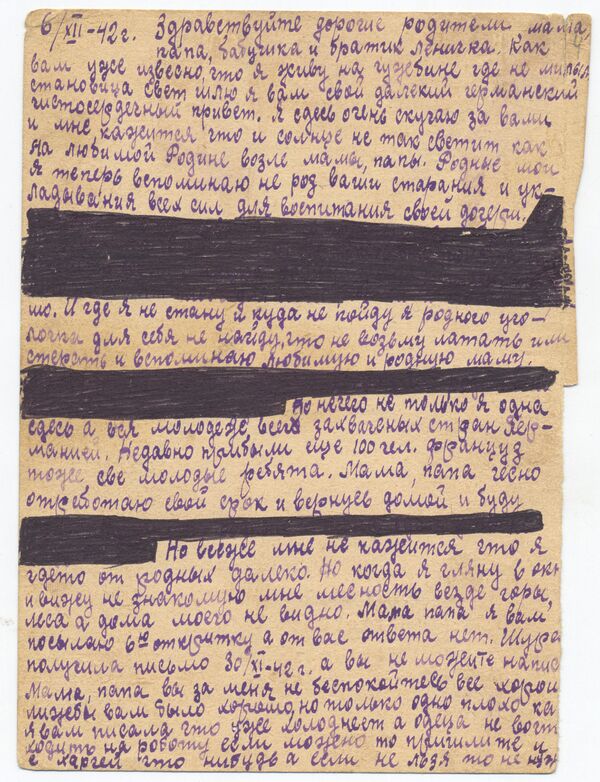 6/XII-42г. Здравствуйте дорогие родители, мама,
папа, бабушка и братик Леничка. Как
вам уже извесно, что я живу на чужбине где не милы
становица свет шлю я вам свой далекий германский
чистосердечный привет. Я сдесь очень скучаю за вами
и мне кажится что и солнце не так светит как
на любимой Родине возле мамы, папы. Родные мои
я теперь вспоминаю не роз ваши старания и ук-
ладывания всех сил для воспитания своей дочери.
мо. И где я не стану и куда не пойду я родного уго-
лочка для себя не найду, что не возьму латать или
стерать и вспоминаю любимую и родную маму.
Но нечего не только я одна
сдесь а вся молодеж всех захваченых стран Гер-
манией. Недавно прибыли еще 100 чел. француз
тоже све молодые ребята. Мама, папа чесно
отработаю свой срок и вернусь домой и буду
Но всеже мне не кажится что я
гдето от родных далеко. Но когда я гляну в окн
и вижу не знакомую мне месность везде горы,
леса а дома моего не видно. Мама папа я вам,
посылаю 6ю открытку а от вас ответа нет. Шура
получила письмо 30/XI-42г. а вы не можите напис
Мама, папа вы за меня не беспокойтесь все хорош
лижбы вам было хорошо, но только одно плохо ка
я вам писала что уже холоднеет а одежа не вогт
ходить на роботу если можно то пришлите и
с харчей что нибудь а если не льзя то не нуж